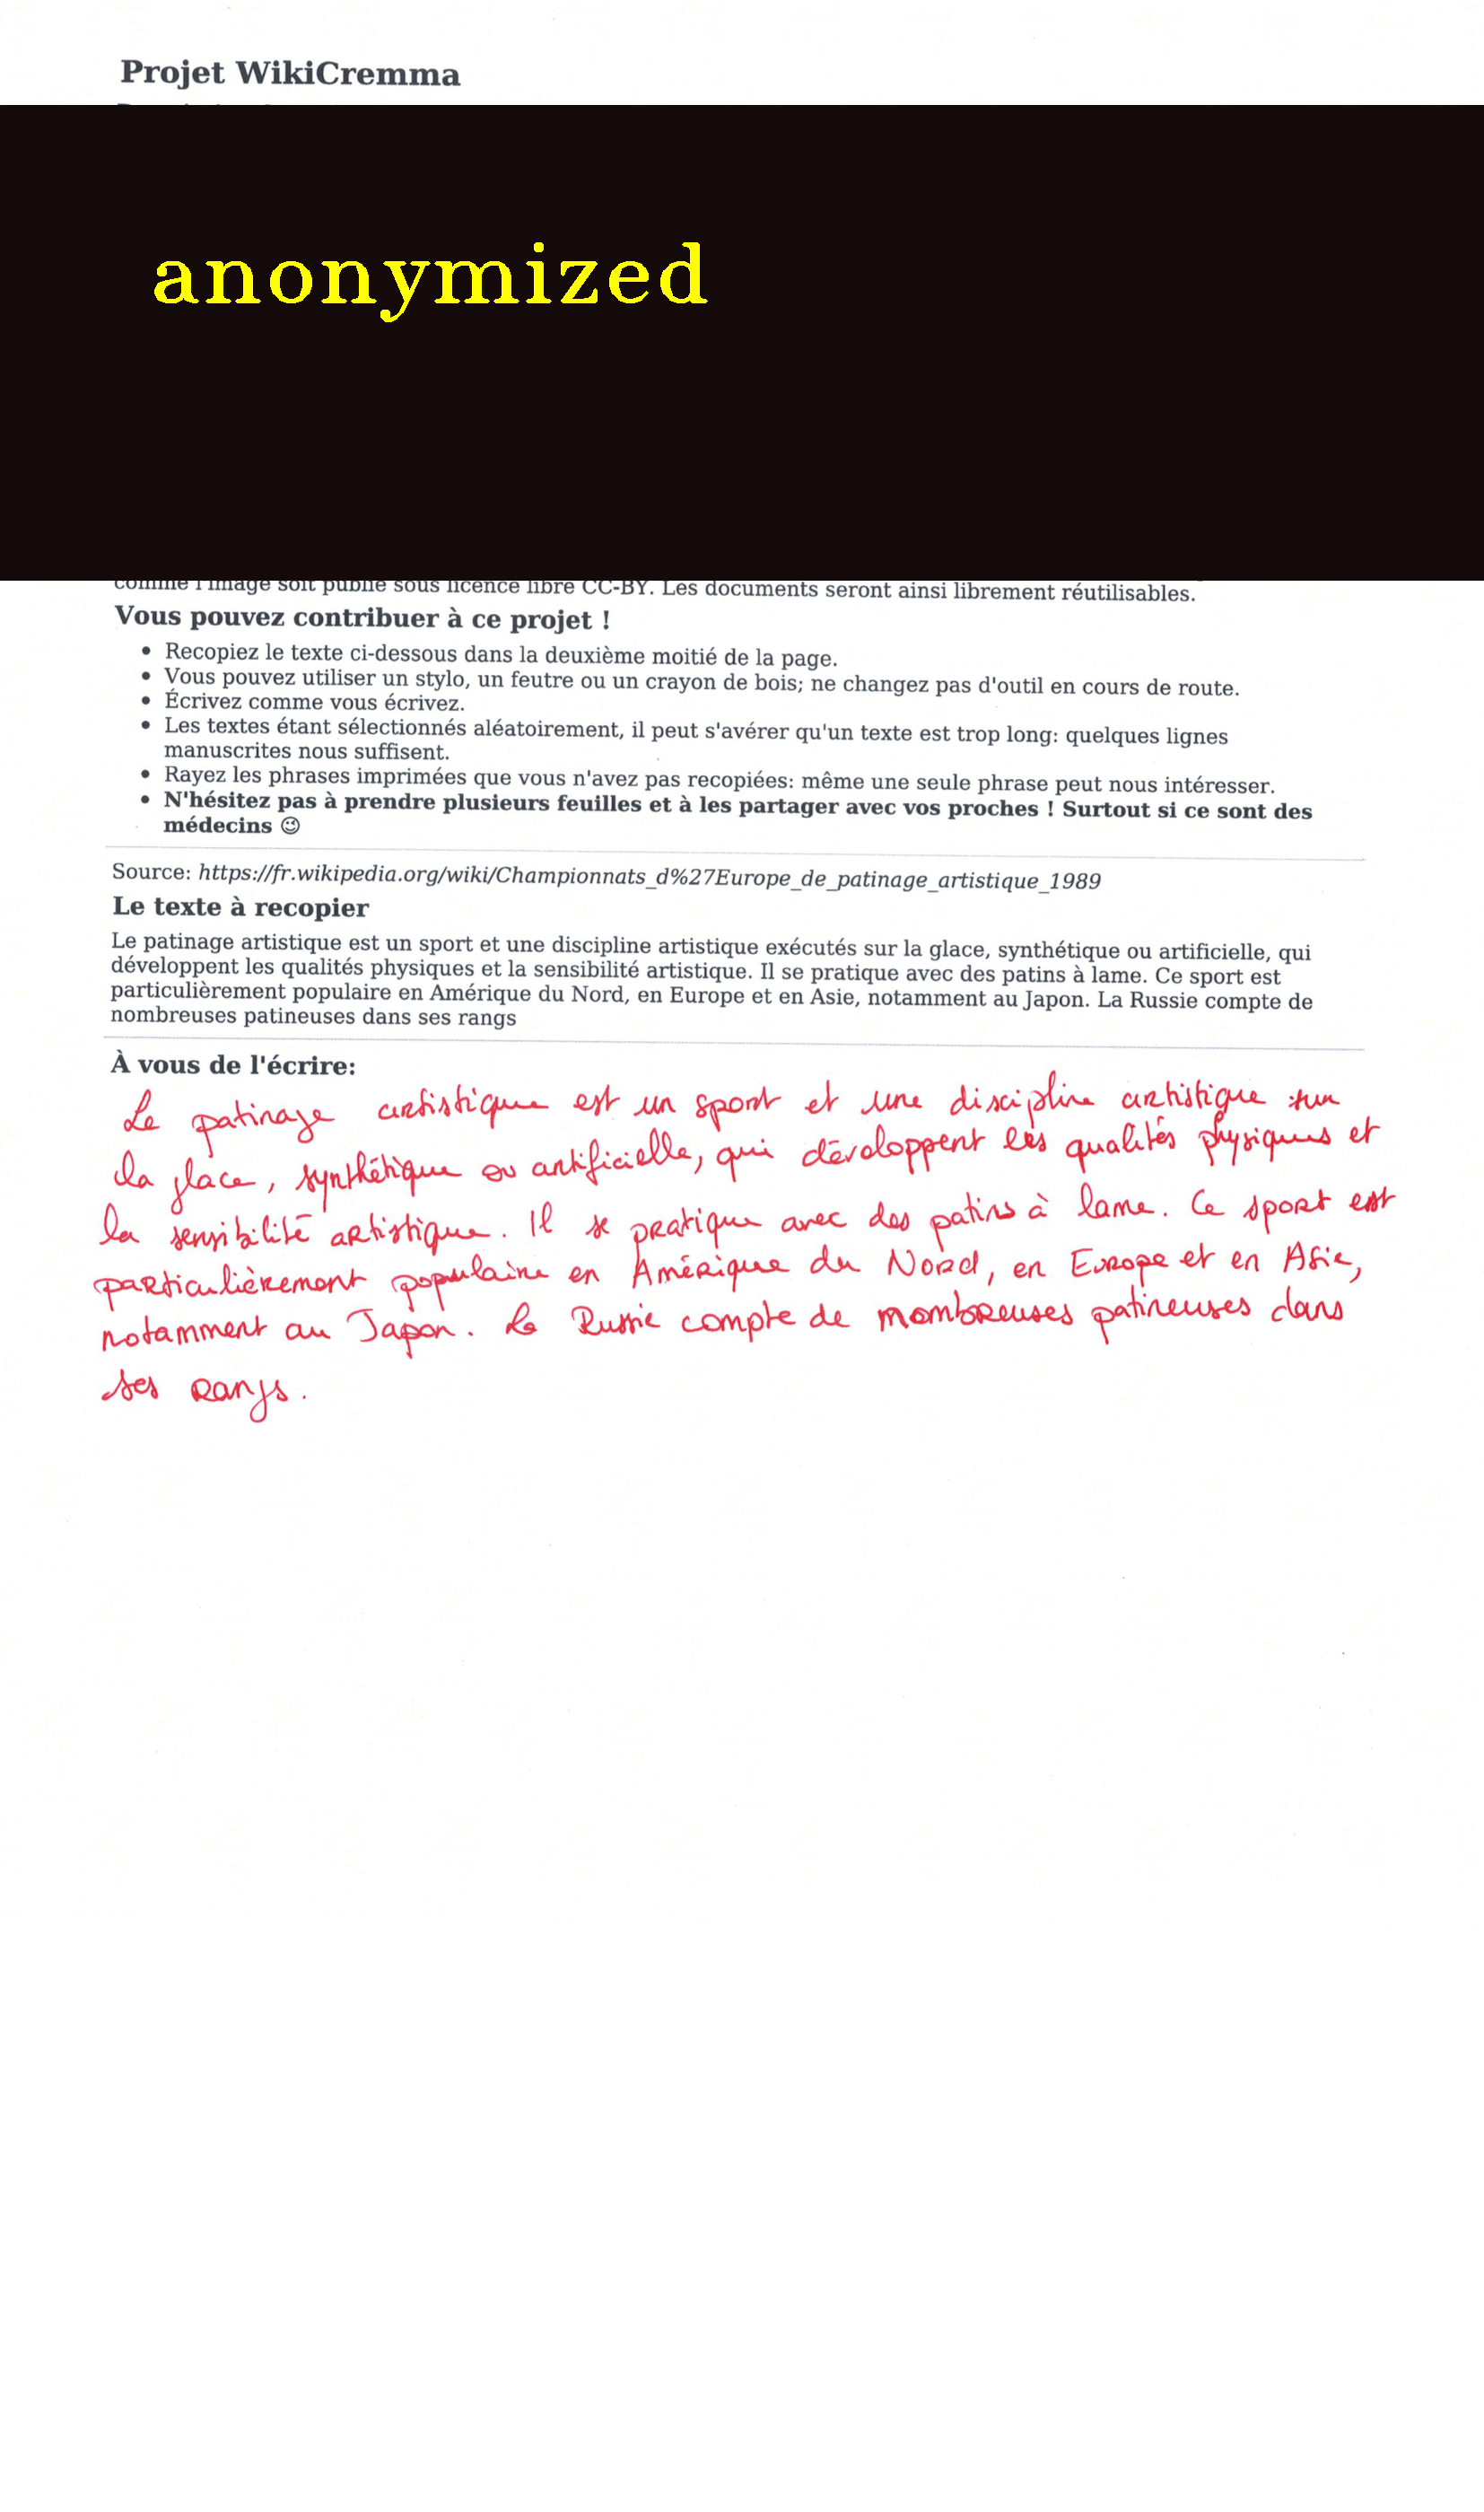 Projet WikiCremma
anonymized
comme l'image soit publié sous licence libre CC-BY. Les documents seront ainsi librement réutilisables.
Vous pouvez contribuer à ce projet !
• Recopiez le texte ci-dessous dans la deuxième moitié de la page.
• Vous pouvez utiliser un stylo, un feutre ou un crayon de bois; ne changez pas d'outil en cours de route.
• Écrivez comme vous écrivez.
• Les textes étant sélectionnés aléatoirement, il peut s'avérer qu'un texte est trop long: quelques lignes
manuscrites nous suffisent.
• Rayez les phrases imprimées que vous n'avez pas recopiées: même une seule phrase peut nous intéresser.
• N'hésitez pas à prendre plusieurs feuilles et à les partager avec vos proches ! Surtout si ce sont des
médecins ☺
Source: https://fr.wikipedia.org/wiki/Championnats_d%27Europe_de_patinage_artistique_1989
Le texte à recopier
Le patinage artistique est un sport et une discipline artistique exécutés sur la glace, synthétique ou artificielle, qui
développent les qualités physiques et la sensibilité artistique. Il se pratique avec des patins à lame. Ce sport est
particulièrement populaire en Amérique du Nord, en Europe et en Asie, notamment au Japon. La Russie compte de
nombreuses patineuses dans ses rangs
À vous de l'écrire:
Le patinage artistique est un sport et une discipline artistique sur
la glace, synthétique ou artificielle, qui développent les qualités physiques et
la sensibilité artistique. Il se pratique avec des patins à lame. Ce sport est
particulièrement populaire en Amérique du Nord, en Europe et en Asie,
notamment au Japon. La Russie compte de nombreuses patineuses dans
ses rangs.